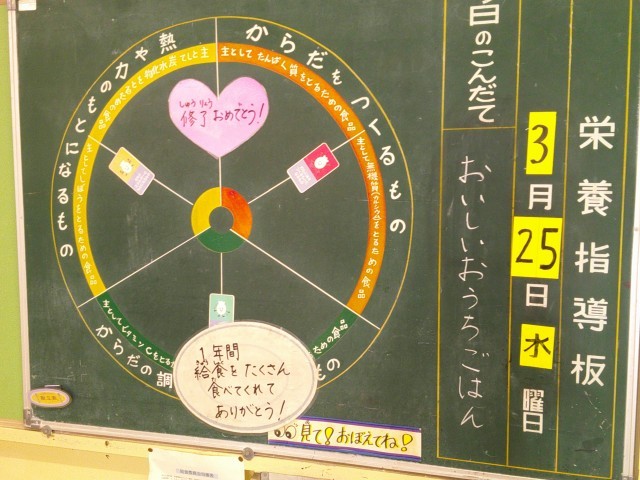 栄養指導板
3月25日水曜日
白のこんだて
おいしいおうちごはん
からだをつくるもの
熱や力のもとになるもの
からだの調
もの
主として たんぱく質をとるための食品
主として無機質(カルシウム)をとるための食品
主として炭水化物をとるための食品
主としてしぼうをとるための食品
主としてビタミンCをとるた
ための食品
しゅうりょう
修了おめでとう!
1年間
給食をたくさん
食べてくれて
ありがとう!
見て!おぼえてね!